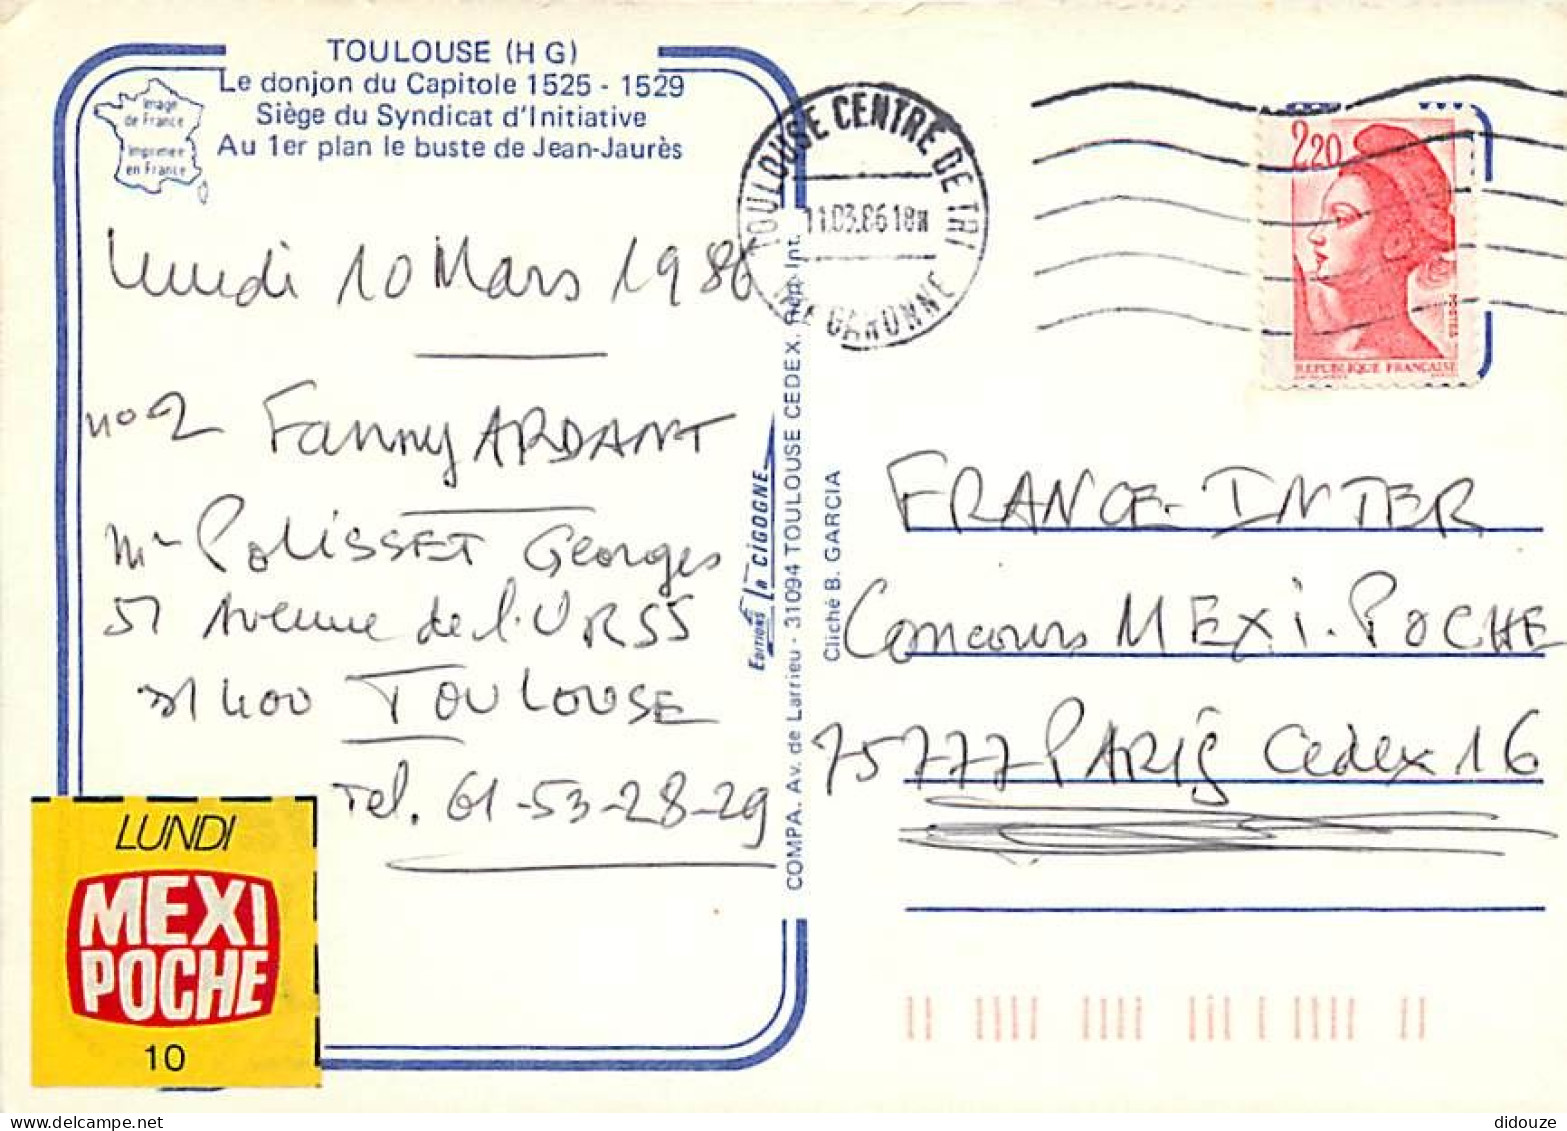 TOULOUSE (HG)
Le donjon du Capitole 1525 - 1529
Siège du Syndicat d'Initiative
Au 1er plan le buste de Jean-Jaurès
Image
de France
Imprimée
en France
Lundi 10 Mars 1986
no 2 Fanny ARDANT
Mr POLISSET Georges
51 Avenue de l'URSS
31400 TOULOUSE
Tel. 61-53-28-29
LUNDI
MEXI
POCHE
10
COMPA. Av. de Larrieu - 31094 TOULOUSE CEDEX. Rep. Int.
EDITIONS La CIGOGNE
Cliché B. GARCIA
TOULOUSE CENTRE DE TRI
11.03.86 18H
GARONNE
2,20
POSTES
REPUBLIQUE FRANÇAISE
FRANCE-INTER
Concours MEXI.POCHE
75777 PARIS Cedex 16
didouze